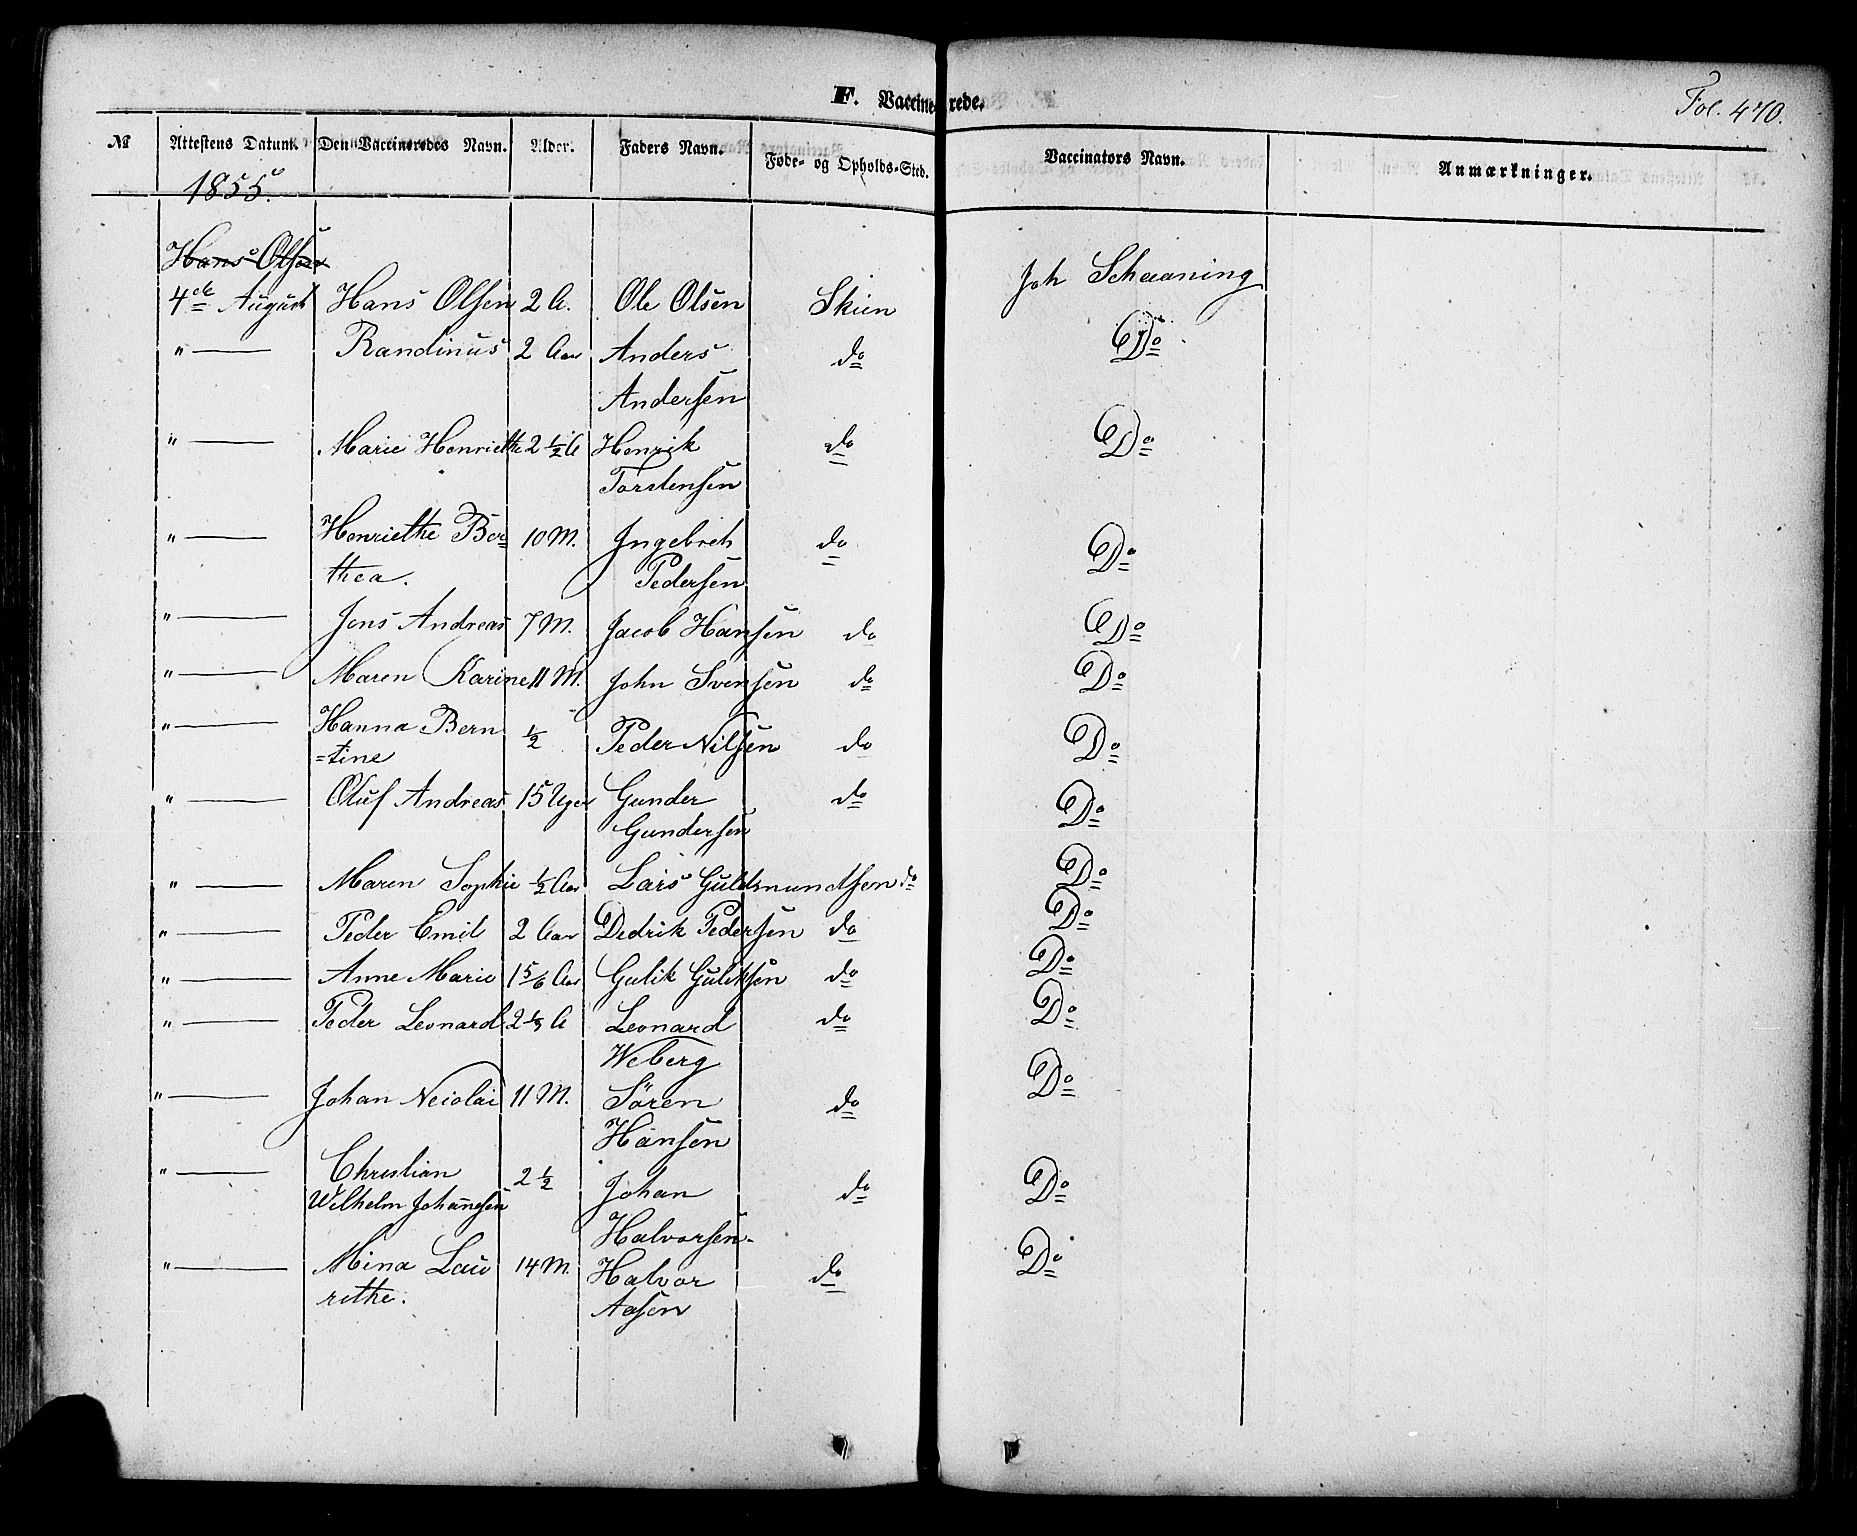 F. Vaccinerede.
Fol. 470.
№ Attestens Datum. Den Vaccineredes Navn. Alder. Faders Navn. Føde- og Opholds-Sted. Vaccinators Navn. Anmærkninger.
1855.
Hans Olsen
4de August Hans Olsen 2 A. Ole Olsen Skien Joh Schaaning
" — Randinus 2 Aar Anders do Do
Andersen
" — Marie Henriethe 2 1/2 A Henrik do Do
Torstensen
" — Henriethe Ber= 10 M. Ingebret do Do
thea. Pedersen
" — Jens Andreas 7 M. Jacob Hansen do Do
" — Maren Karine 11 M. John Svensen do Do
" — Hanna Bern 1/2 Peder Nilsen do Do
=tine
" — Oluf Andreas 15 Uger Gunder do Do
Gundersen
" — Maren Sophie 1/2 Aar Lars Guldmundsen do Do
" — Peder Emil 2 Aar Dedrik Pedersen do Do
" — Anne Marie 1 5/6 Aar Gulik Guliksen do Do
" — Peder Leonard 2 1/3 A Leonard do Do
Weberg
" — Johan Neiolai 11 M. Sören do Do
Hansen
" — Christian 2 1/2 Johan do Do
Wilhelm Johannesen
Halvorsen.
" — Mina Lau 14 M. Halvor do Do
rethe. Aasen